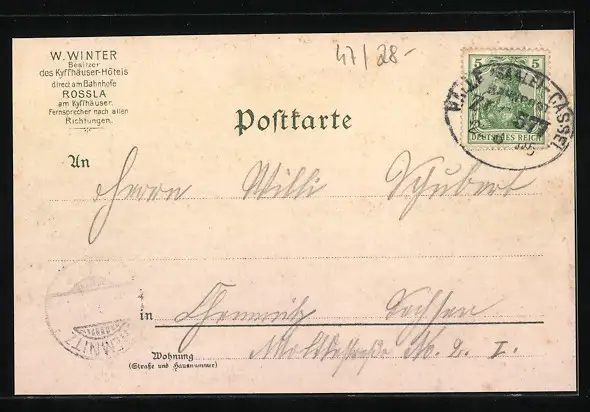 W. WINTER
Besitzer
des Kyffhäuser-Hôtels
direct am Bahnhofe
ROSSLA
am Kyffhäuser.
Fernsprecher nach allen
Richtungen.
47/28-
5 5
DEUTSCHES REICH
HALLE (SAALE)-CASSEL
Postkarte
An
Herrn Willi Schubert
in Chemnitz Sachsen
CHEMNITZ
Wohnung
(Straße und Hausnummer)
Moltkestraße No. 2. I.